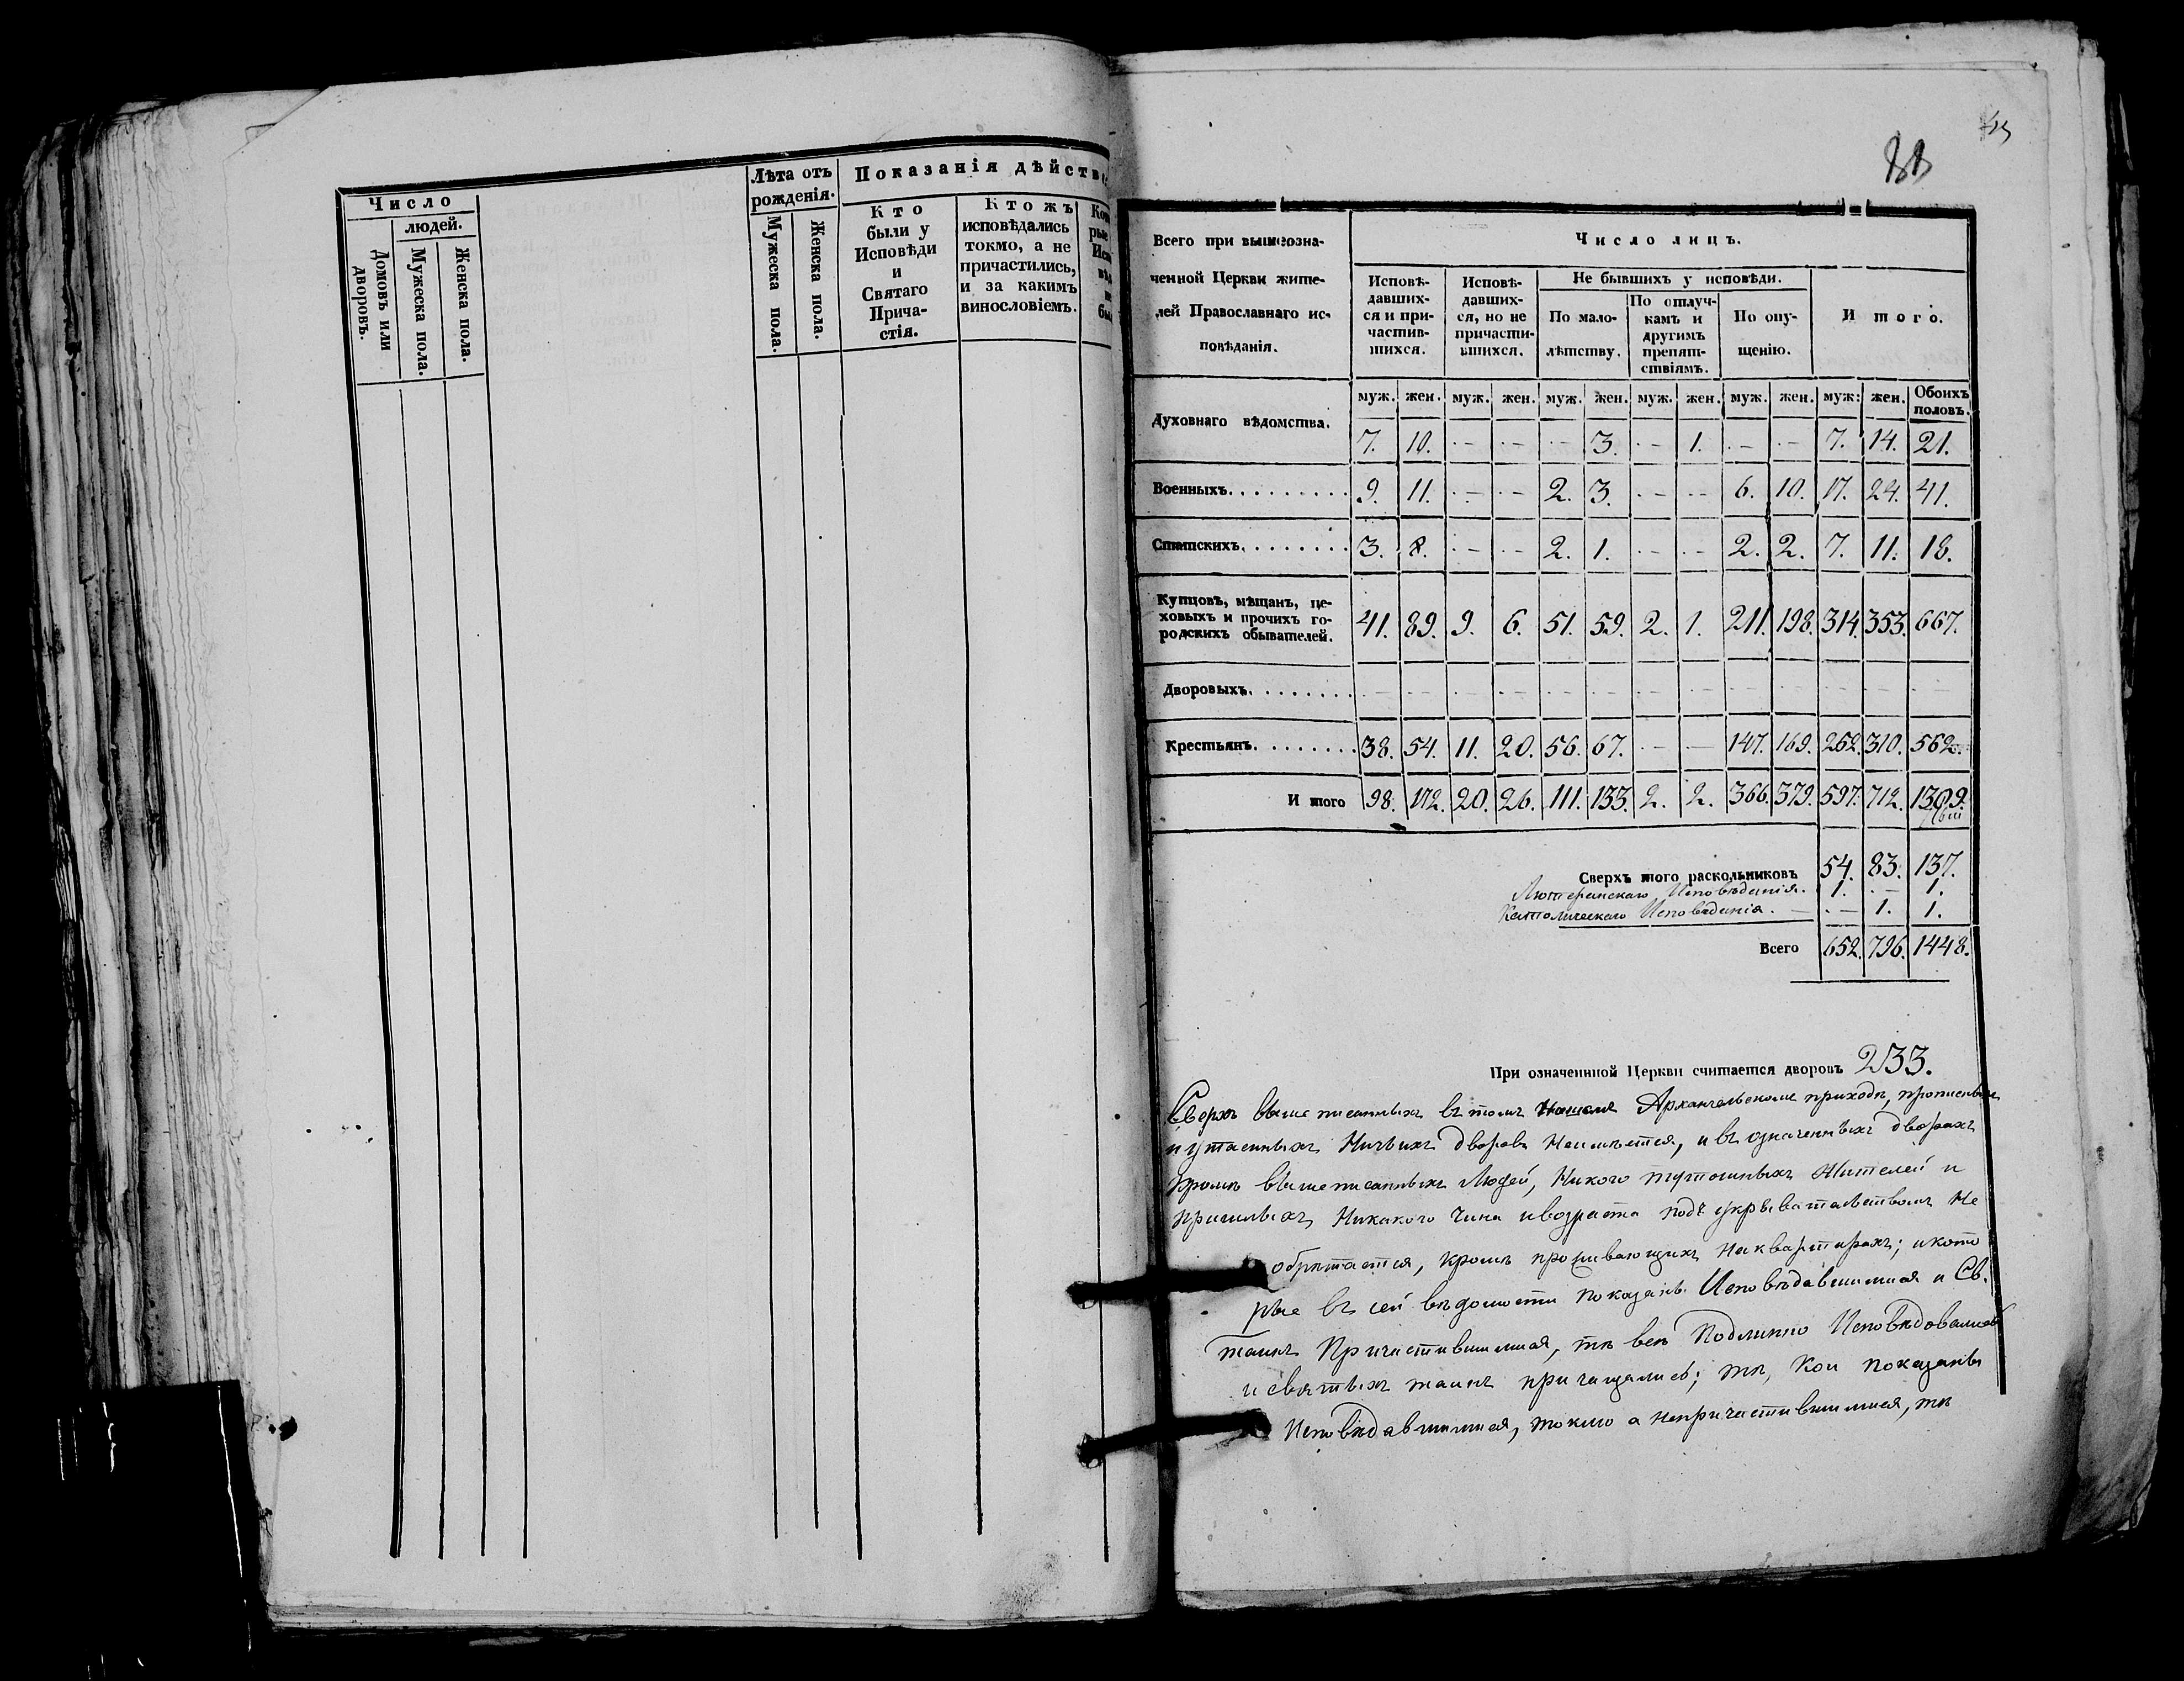 Число
людей.
Домовъ или дворовъ.
Мужеска пола.
Женска пола.
Лѣта отъ рожденія.
Мужеска пола.
Женска пола.
Показанія дѣйств
Кто
были у
Исповѣди
и
Святаго
Прича-
стія.
Кто жъ
исповѣдались
токмо, а не
причастились,
и за какимъ
винословіемъ.
Всего при вышеозна-
ченной Церкви жите-
лей Православнаго ис-
повѣданія.
Число лицъ.
Исповѣ-
давших-
ся и при-
частив-
шихся.
Исповѣ-
давших-
ся, но не
причасти-
вшихся.
Не бывшихъ у исповѣди.
По мало-
лѣтству.
По отлуч-
камъ и
другимъ
препят-
ствіямъ.
По опу-
щенію.
Итого.
муж. жен. муж. жен. муж. жен. муж. жен. муж. жен. муж: жен. Обоихъ половъ.
Духовнаго вѣдомства. 7. 10. – – – 3. – 1. – – 7. 14. 21.
Военныхъ. 9. 11. – – 2. 3. – – 6. 10. 17. 24. 41.
Статскихъ. 3. 8. – – 2. 1. – – 2. 2. 7. 11. 18.
Купцовъ, мѣщанъ, це-
ховыхъ и прочихъ го-
родскихъ обывателей. 41. 89. 9. 6. 51. 59. 2. 1. 211. 198. 314. 353. 667.
Дворовыхъ. – – – – – – – – – – – – –
Крестьянъ. 38. 54. 11. 20. 56. 67. – – 147. 169. 252. 310. 562.
И того 98. 172. 20. 26. 111. 133. 2. 2. 366. 379. 597. 712. 1309.
Сверхъ того раскольниковъ 54. 83. 137.
Лютеранскаго Исповѣданія. 1. – 1.
Католическаго Исповѣданія. – 1. 1.
Всего 652. 796. 1448.
При означенной Церкви считается дворовъ 233.
Сверхъ вышеписанныхъ въ томъ Архангельскомъ приходѣ,
и утаенныхъ Ничьихъ дворовъ Неимѣется, и въ означенныхъ дворахъ
кромѣ вышеписанныхъ Людей, Никого тутошныхъ Жителей и
пришлыхъ Никакого Чина и возраста подъ укрывательствомъ Не
обрѣтается, кромѣ проживающихъ На квартирахъ; и кото
рые въ сей вѣдомости показаны Исповѣдавшимися и Св.
таинъ Причастившимися, тѣ всѣ Подлинно Исповѣдовались
и святыхъ таинъ причащались; тѣ, Кои показаны
Исповѣдавшимися, токмо а Непричастившимися, тѣ